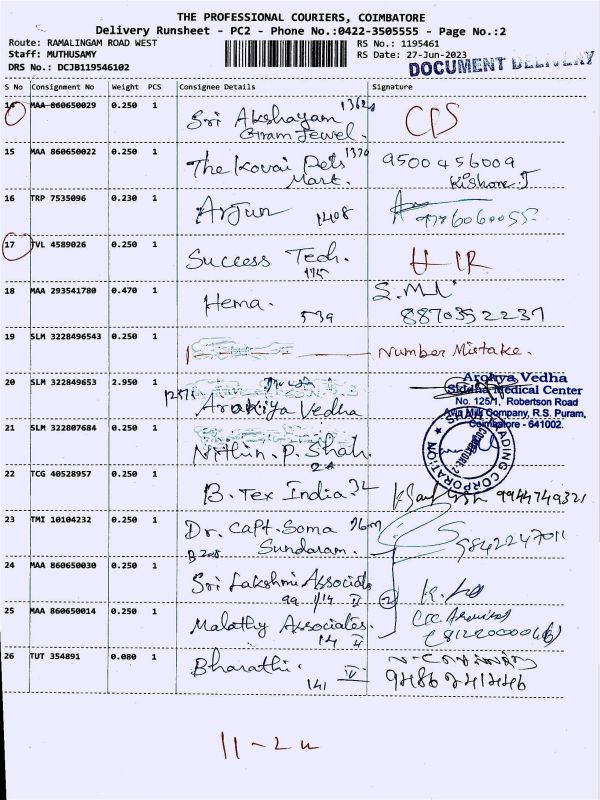 THE PROFESSIONAL COURIERS, COIMBATORE
Delivery Runsheet - PC2 - Phone No.:0422-3505555 - Page No.:2
Route: RAMALINGAM ROAD WEST
Staff: MUTHUSAMY
DRS No.: DCJB119546102
RS No.: 1195461
RS Date: 27-Jun-2023
DOCUMENT DELIVERY
S No Consignment No Weight PCS Consignee Details Signature
14 MAA 860650029 0.250 1 Sri Akshayam
15 MAA 860650022 0.250 1 The Kovai Pets Mart. 9500456009
Kishore.J
16 TRP 7535096 0.230 1 Arjun 1408
17 TVL 4589026 0.250 1 Success Tech.
18 MAA 293541780 0.470 1 Hema. 539
8870352237
19 SLM 3228496543 0.250 1 Number Mistake.
20 SLM 322849653 2.950 1 Arokiya Vedha
Arokya Vedha
Siddha Medical Center
No. 125/1, Robertson Road
Company, R.S. Puram,
Coimbatore - 641002.
21 SLM 322807684 0.250 1 Nithin.P.Shah
TRADING CORPORATION
COIMBATORE-2
22 TCG 40528957 0.250 1 B.Tex India 32 9944749321
23 TMI 10104232 0.250 1 Dr. Capt. Soma Sundaram. 9842247011
24 MAA 860650030 0.250 1 Sri Lakshmi Associates
25 MAA 860650014 0.250 1 Malathy Associates.
26 TUT 354891 0.080 1 Bharathi. 141 IV